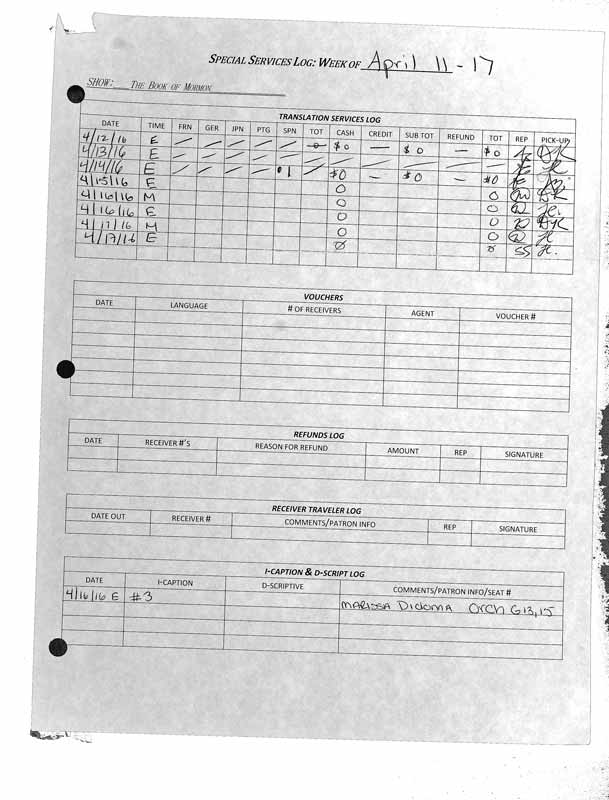 SPECIAL SERVICES LOG: WEEK OF April 11-17
SHOW: THE BOOK OF MORMON
TRANSLATION SERVICES LOG
DATE TIME FRN GER JPN PTG SPN TOT CASH CREDIT SUB TOT REFUND TOT REP PICK-UP
4/12/16 E / / / / / 0 $0 — $0 — $0
4/13/16 E
4/14/16 E
4/15/16 E $0 — $0 — $0
4/16/16 M 0 0
4/16/16 E 0 0
4/17/16 M 0 0
4/17/16 E 0 0
0 0 SS
VOUCHERS
DATE LANGUAGE # OF RECEIVERS AGENT VOUCHER #
REFUNDS LOG
DATE RECEIVER #'S REASON FOR REFUND AMOUNT REP SIGNATURE
RECEIVER TRAVELER LOG
DATE OUT RECEIVER # COMMENTS/PATRON INFO REP SIGNATURE
I-CAPTION & D-SCRIPT LOG
DATE I-CAPTION D-SCRIPTIVE COMMENTS/PATRON INFO/SEAT #
4/16/16 E #3 MARISSA Dicloma Orch G13,15